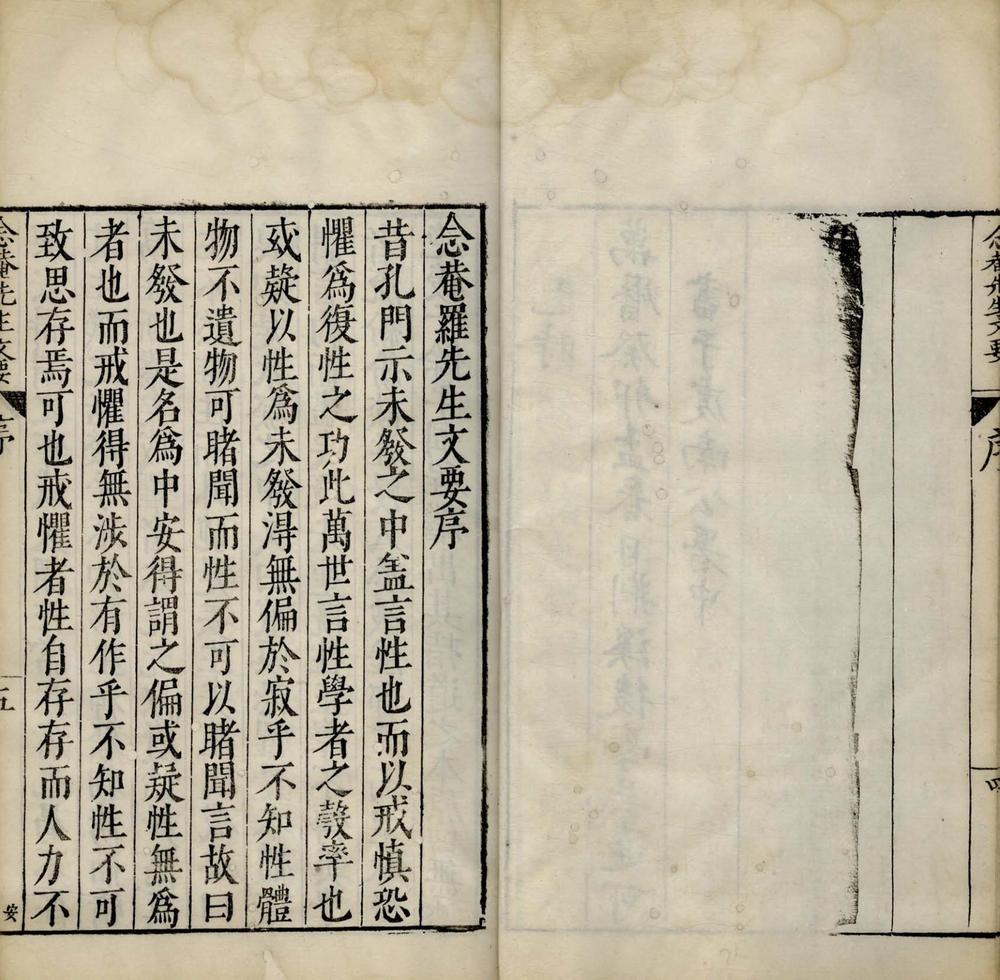 念菴先生文要
序
四
念菴羅先生文要序
昔孔門示未發之中盖言性也而以戒慎恐
懼爲復性之功此萬世言性學者之彀率也
或疑以性爲未發淂無偏於寂乎不知性體
物不遺物可睹聞而性不可以睹聞言故曰
未發也是名爲中安得謂之偏或疑性無爲
者也而戒懼得無涉於有作乎不知性不可
致思存焉可也戒懼者性自存存而人力不
念菴先生文要
序
五
安